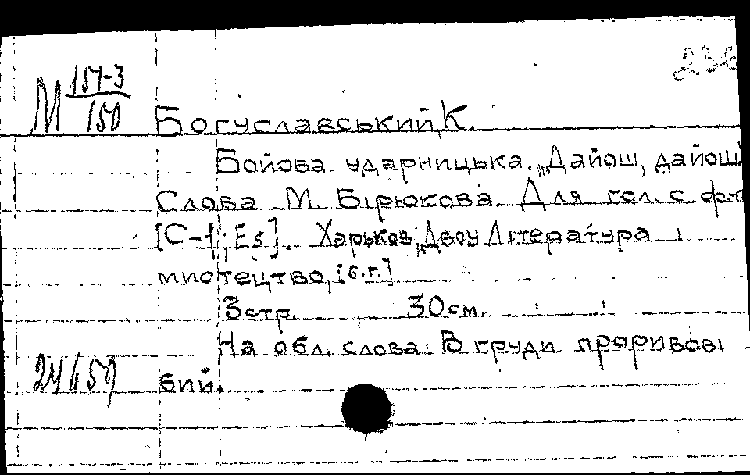 236
М 157-3
150
Богуславський, К.
Бойова ударницька. „Дайош, дайош
Слова М. Бірюкова. Для гол. с ф-п
[С-f; Es]. Харьков, Двоу Література і
мистецтво, [б.г.]
3 стр. 30 см.
На обл. слова: В груди проривові
бий.
24657